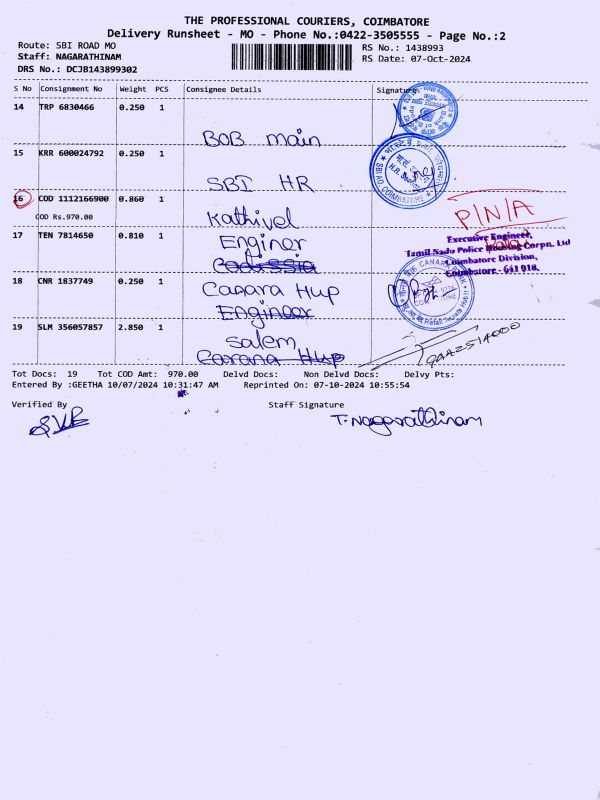 THE PROFESSIONAL COURIERS, COIMBATORE
Delivery Runsheet - MO - Phone No.:0422-3505555 - Page No.:2
Route: SBI ROAD MO
RS No.: 1438993
Staff: NAGARATHINAM
RS Date: 07-Oct-2024
DRS No.: DCJB143899302
S No Consignment No Weight PCS Consignee Details Signature
14 TRP 6830466 0.250 1
BOB main
15 KRR 600024792 0.250 1
SBI HR
16 COD 1112166900 0.860 1
COD Rs.970.00
Kathivel
P/N/A
17 TEN 7814650 0.810 1
Enginer
Executive Engineer,
Tamil Nadu Police Housing Corpn. Ltd
Coimbatore Division,
Coimbatore - 641 018.
18 CNR 1837749 0.250 1
Canara Hup
Engineer
19 SLM 356057857 2.850 1
Salem
Tot Docs: 19 Tot COD Amt: 970.00 Delvd Docs: Non Delvd Docs: Delvy Pts:
Entered By :GEETHA 10/07/2024 10:31:47 AM Reprinted On: 07-10-2024 10:55:54
Verified By Staff Signature
T. Nagarathinam